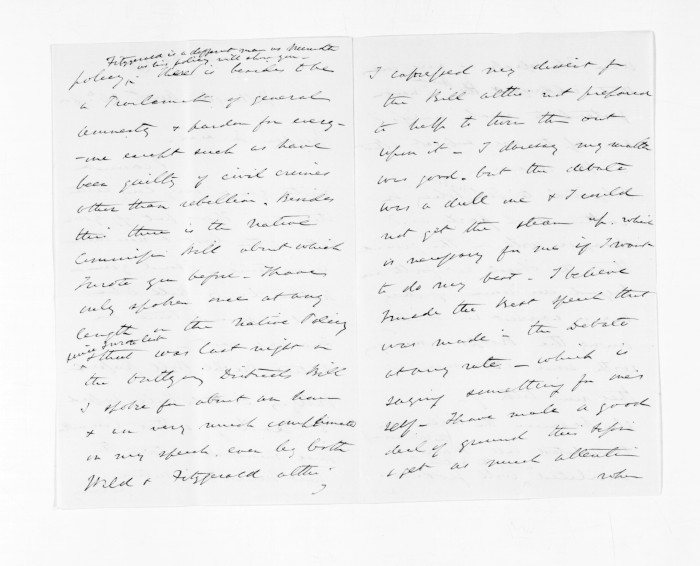 Fitzgerald is a different man as
as his policy will show you -
policy. There is besides to be
a Proclamation of general
amnesty & pardon for every-
-one except such as have
been guilty of civil crimes
other than rebellion. Besides
this there is the Native
Commission Bill about which
I wrote you before - I have
only spoken once at any
length on the Native Policy
since I wrote last
& that was last night on
the Outlying Districts Bill
I spoke for about an hour
& am very much complimented
on my speech even by both
Weld & Fitzgerald altho'
I
I expressed my dissent from
the Bill altho' not prepared
to help to turn them out
upon it - I daresay my matter
was good - but the debate
was a dull one & I could
not get the steam up which
is necessary for me if I want
to do my best - I believe
I made the best speech that
was made in the Debate
at any rate - which is
saying something for one's
self - I have made a good
deal of ground this Session
& get as much attention
when